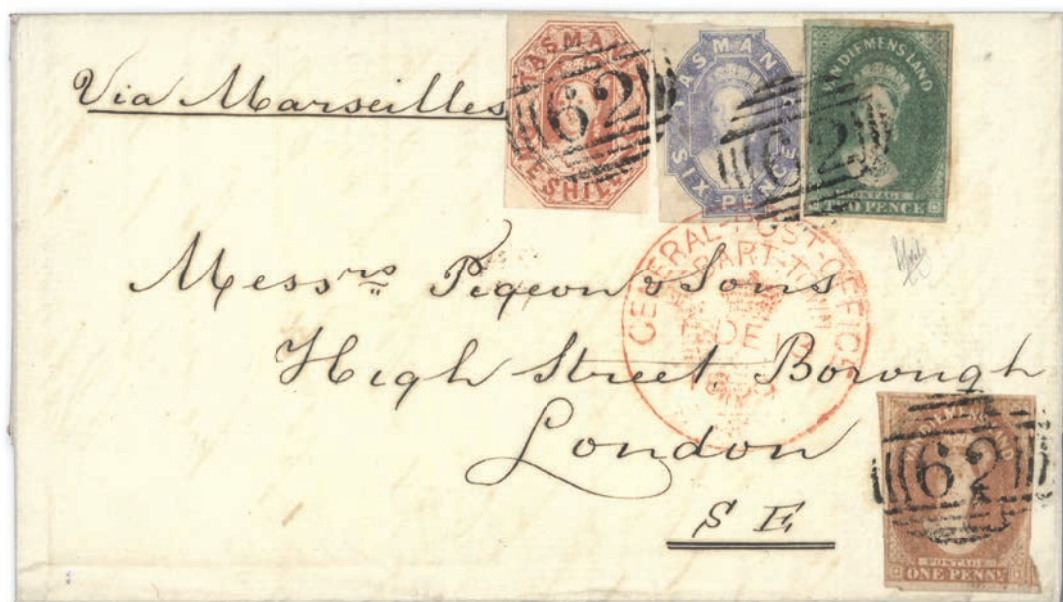 Via Marseilles
TASMAN
62
SHILL
TASMAN
SIX-PENCE
62
VAN DIEMENS LAND
POSTAGE
TWO PENCE
GENERAL-POST-OFFICE
HOBART-TOWN
DE
Messrs Pigeon & Sons
High Street, Borough
London
S E
VAN DIEMENS LAND
62
POSTAGE
ONE PENNY